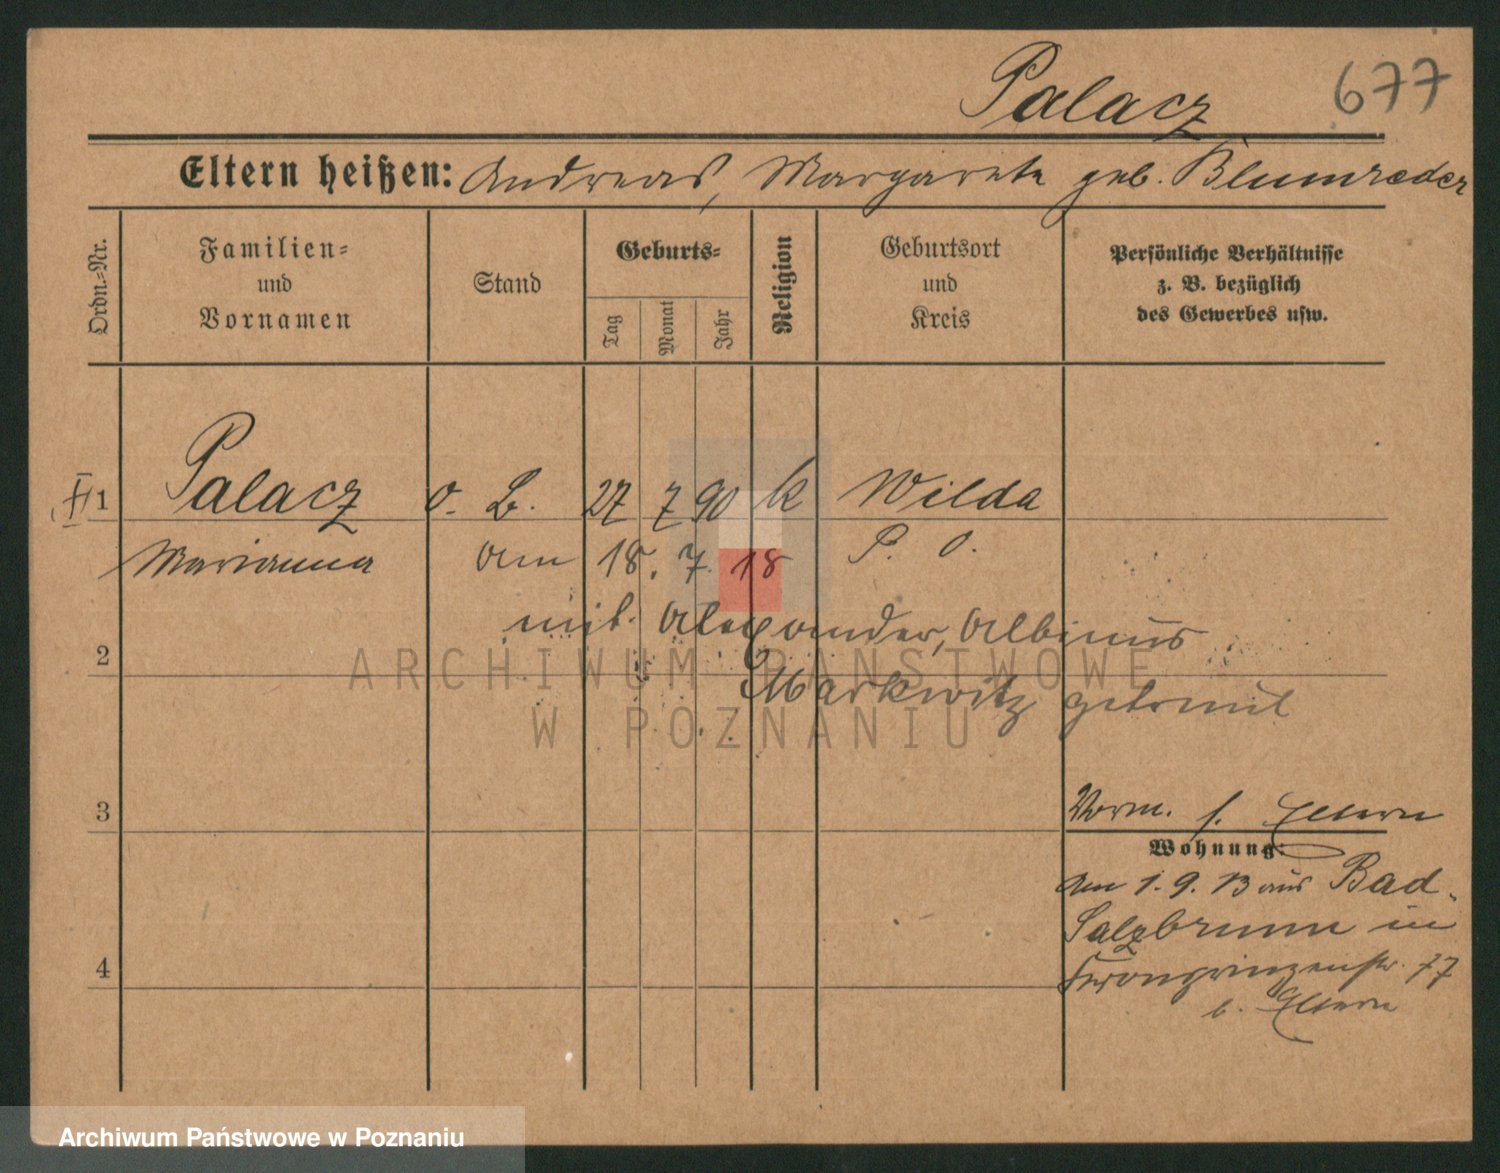 Palacz 677
Eltern heißen: Andreas, Margarete geb. Blumreder
Ordn.-Nr.
Familien-
und
Vornamen
Stand
Geburts-
Tag
Monat
Jahr
Religion
Geburtsort
und
Kreis
Persönliche Verhältnisse
z. B. bezüglich
des Gewerbes usw.
II 1 Palacz o. B. 27 7 90 k Wilda
Marianna am 18. 7. 18 P. O.
mit Alexander, Albinus
2
Markwitz getraut
ARCHIWUM PAŃSTWOWE
W POZNANIU
3 Vorm. s. Eltern
Wohnung:
Am 1. 9. 13 aus Bad-
Salzbrunn in
4 Kronprinzenstr. 77
b. Eltern
Archiwum Państwowe w Poznaniu